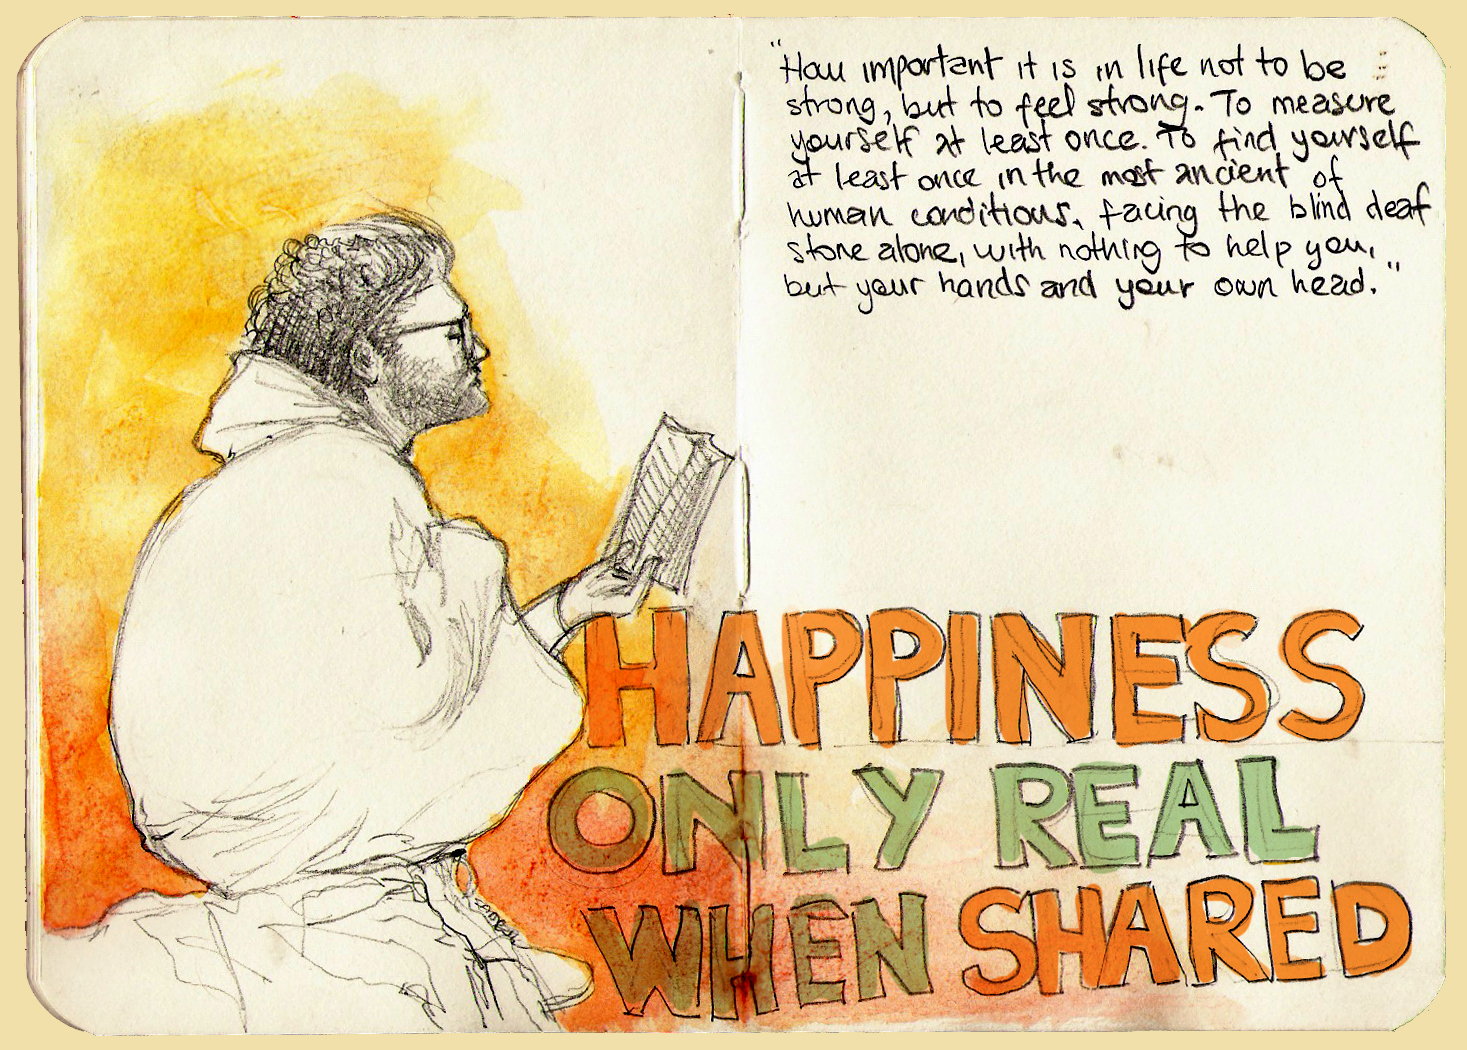 "How important it is in life not to be
strong, but to feel strong. To measure
yourself at least once. To find yourself
at least once in the most ancient of
human conditions, facing the blind deaf
stone alone, with nothing to help you,
but your hands and your own head."
HAPPINESS
ONLY REAL
WHEN SHARED